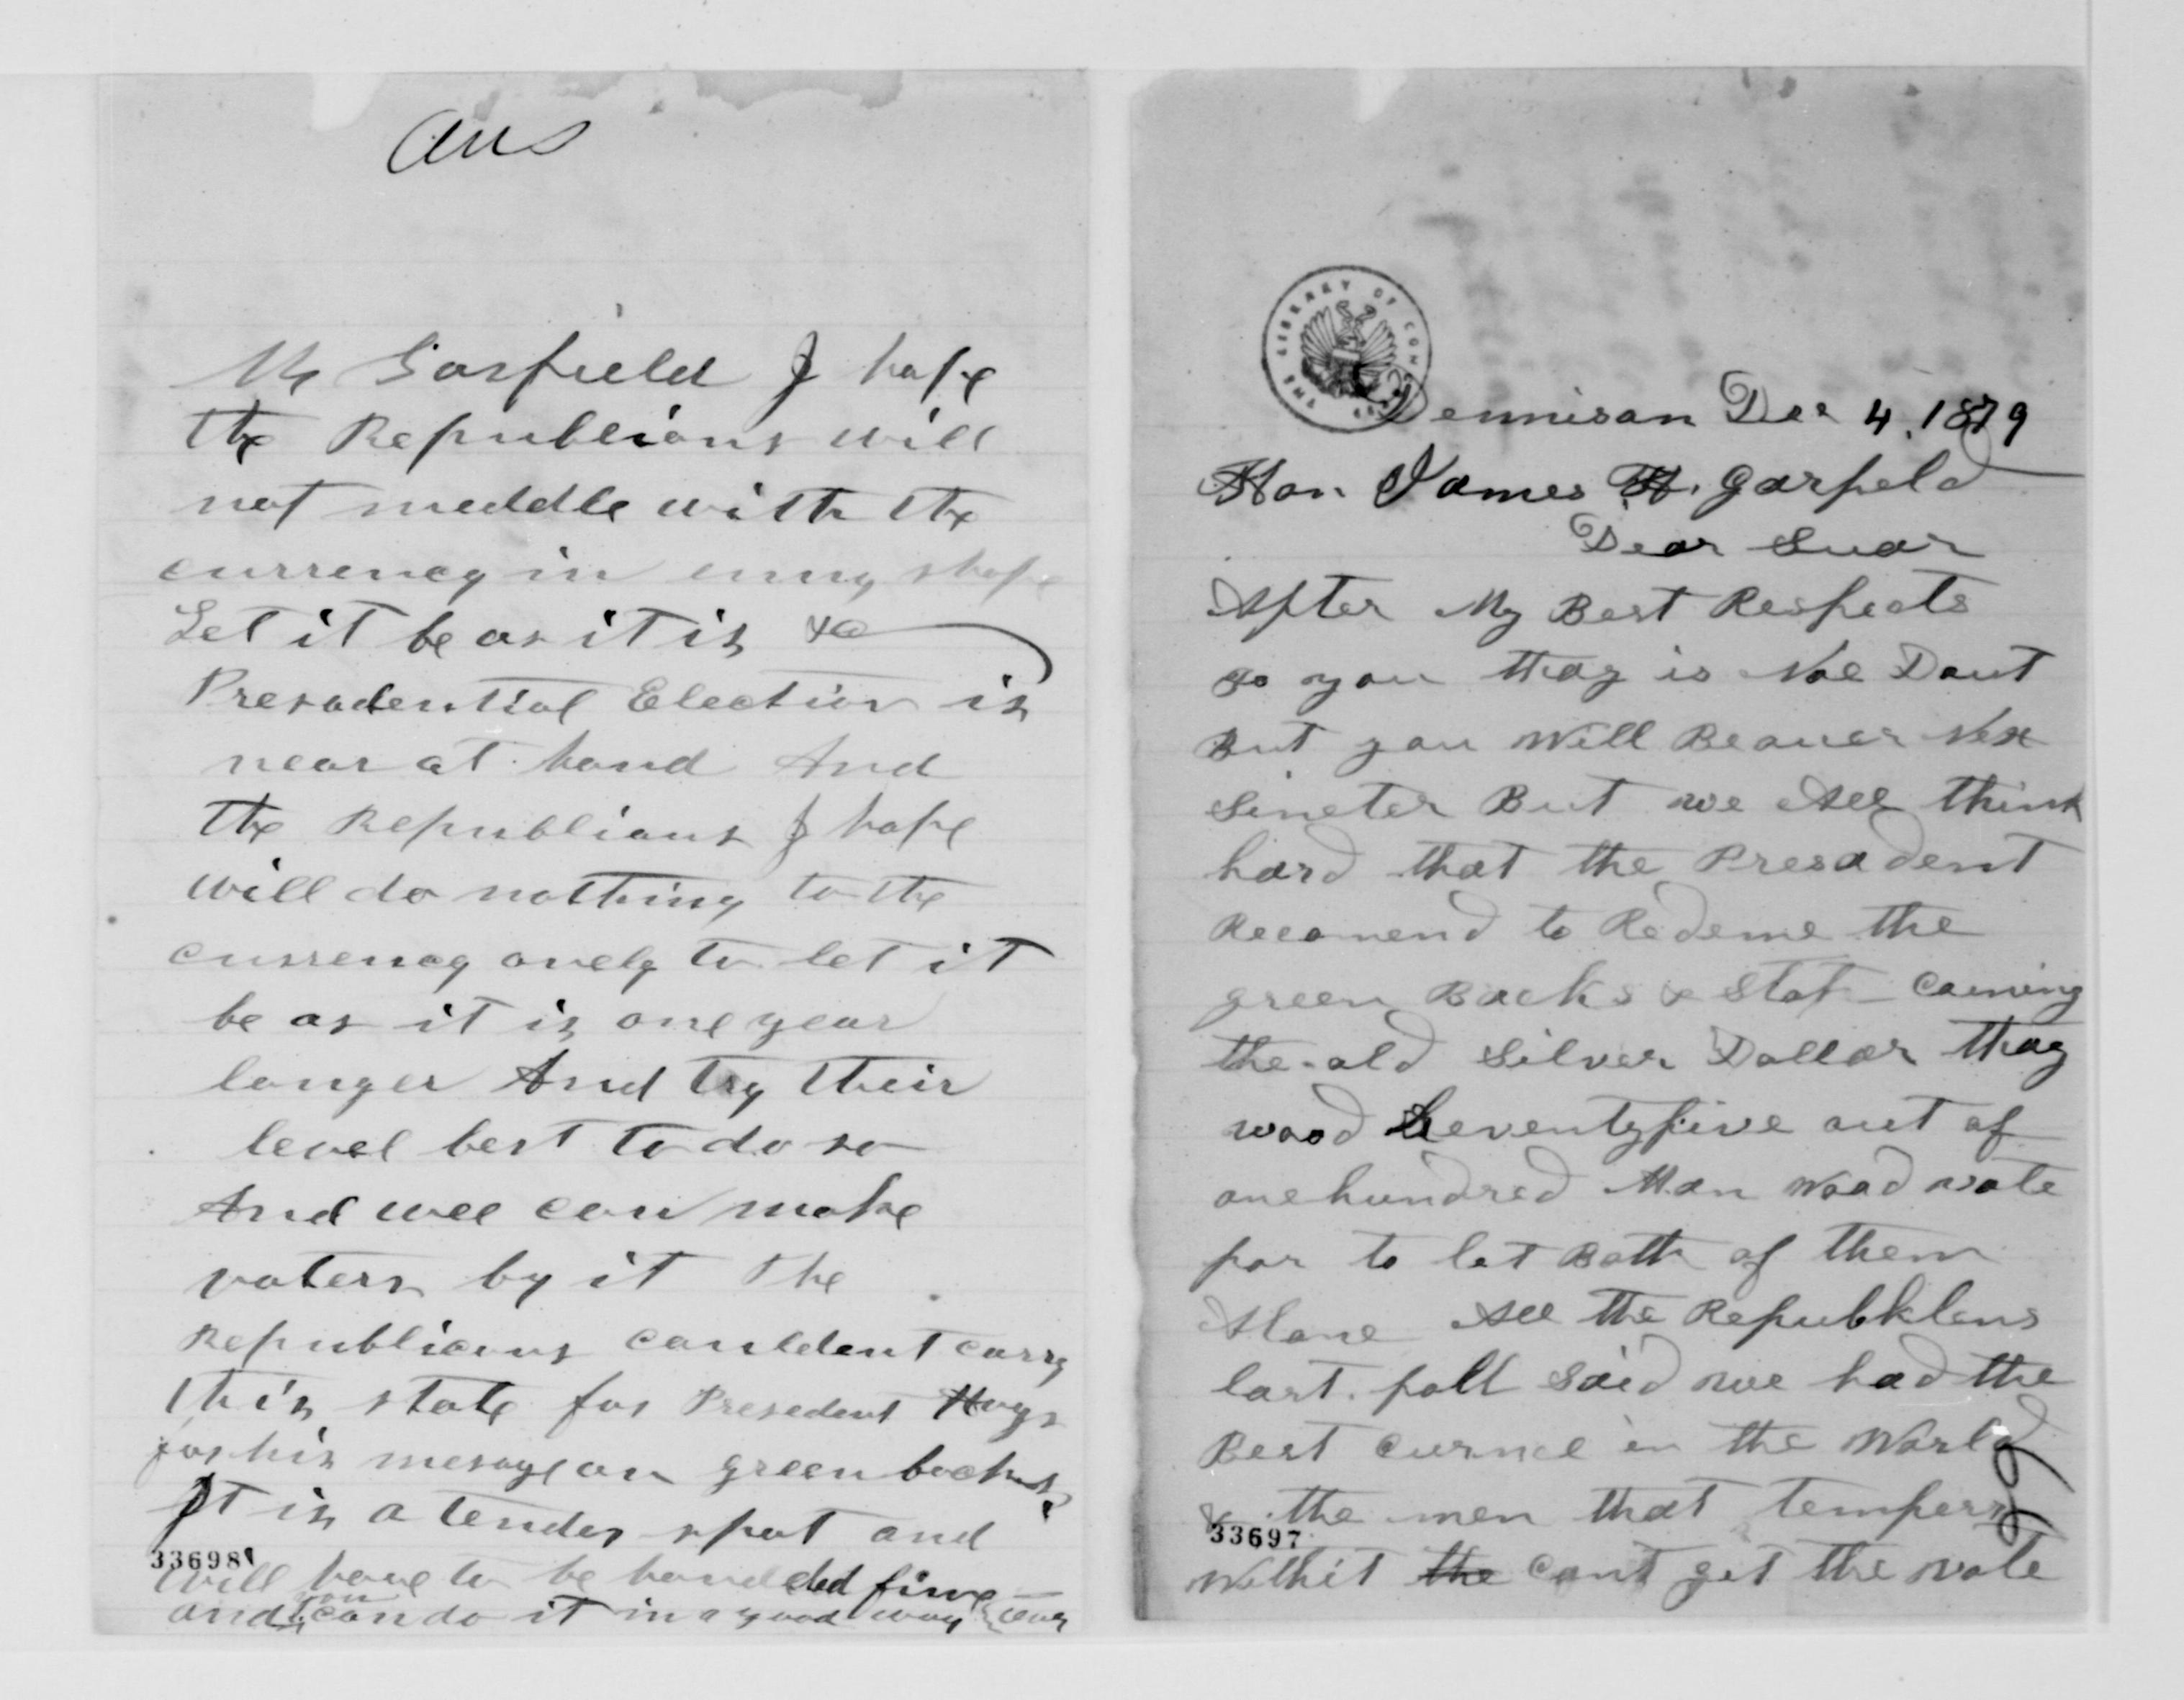 Ans
Mr Garfield I hope
the Republicans will
not meddle with the
currency in enny shape
Let it be as it is &c
Presadential Election is
near at hand And
the Republians I hope
will do nothing to the
currency onely to let it
be as it is one year
longer And try their
level best to do so
And wee can make
voters by it The
Republicans couldent carry
this state for Presedent Hays
for his mesage on green backs
It is a tender spot and
will have to be handeled fine
and you can do it in a good way
33698
THE LIBRARY OF CONGRESS
Dennison Dec 4, 1879
Hon James H. Garfield
Dear Suar
After My Best Respects
to you thay is Noe Dout
But you Will Beaver Nex
Sineter But we All think
hard that the Presadent
Recomend to Redeme the
green Backs & Stop Coining
the old Silver Dollar thay
wood Seventyfive out of
one hundred Man Wood vote
for to let Both of them
Alone All the Republklens
last fall Said we had the
Best Curnce in the World
& the men that tempers
Withit the cant get the vote
33697